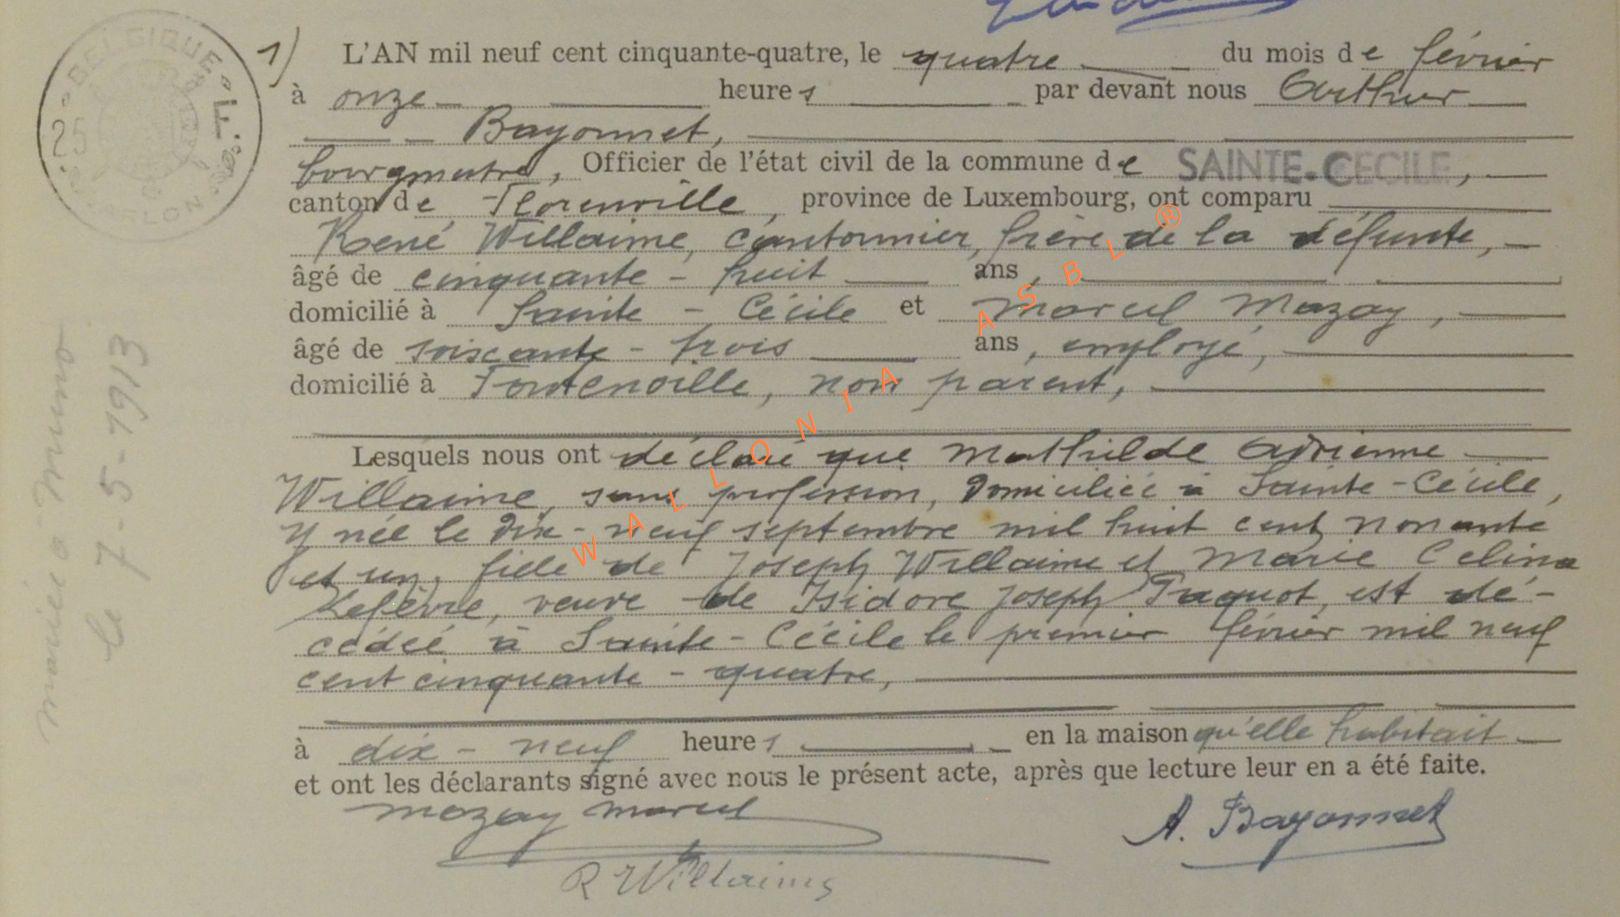 1) L'AN mil neuf cent cinquante-quatre, le quatre du mois de février
à onze heures par devant nous Arthur
Bayonnet,
bourgmestre, Officier de l'état civil de la commune de SAINTE-CECILE,
canton de Florenville, province de Luxembourg, ont comparu
René Willaime, cantonnier, frère de la défunte,
âgé de cinquante-huit ans,
domicilié à Sainte-Cécile et Marcel Mozay,
âgé de soixante-trois ans, employé,
domicilié à Fontenoille, non parent,
Lesquels nous ont déclaré que Mathilde Adrienne
Willaime, sans profession, domiciliée à Sainte-Cécile,
y née le dix-neuf septembre mil huit cent nonante
et un, fille de Joseph Willaime et Marie Celina
Lefèvre, veuve de Isidore Joseph Paquot, est dé-
cédée à Sainte-Cécile le premier février mil neuf
cent cinquante-quatre,
à dix-neuf heures en la maison qu'elle habitait
et ont les déclarants signé avec nous le présent acte, après que lecture leur en a été faite.
Mozay Marcel A. Bayonnet
R Willaime
mariée à Muno
le 7-5-1913
BELGIQUE
25
ARLON
WALLONIA ASBL®